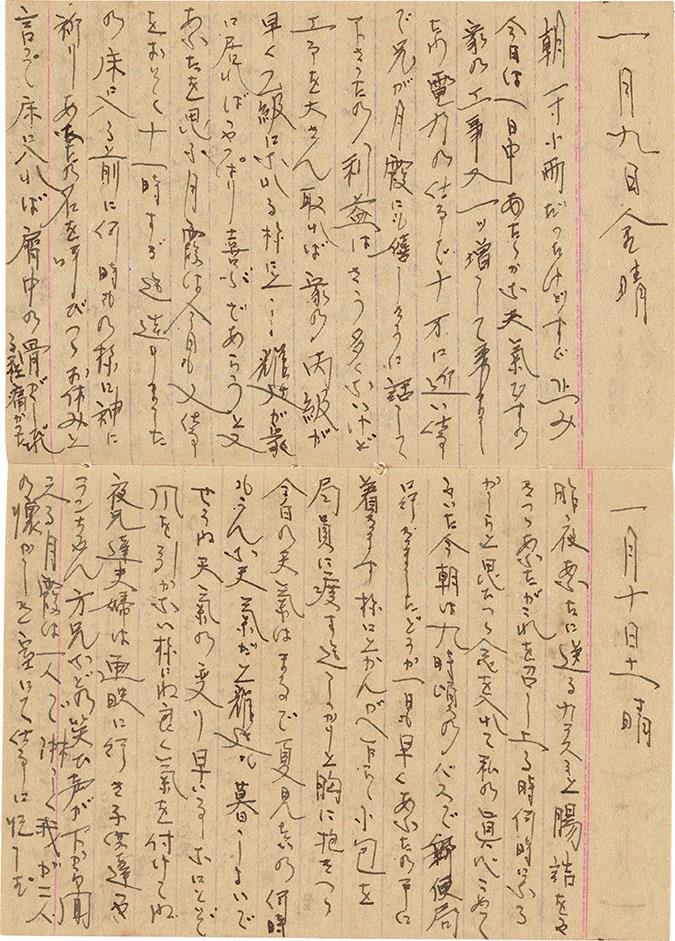 一月九日金晴
朝一寸小雨だったけどすぐ止み
今日は一日中あたゝかな天氣ですの
家の工事又一ツ増して来まし
た 電力の仕事で十万に近い仕事
で兄が月霞にも嬉しさうに話して
下さったの 利益はさう多くないけど
工事を大きん取れば家の丙級が
早く乙級になれる様にと
に居ればやっぱり喜ぶであらうと又
あなたを思ふ月霞は今日も又仕事
をおそく十一時すぎ迄造りました
の 床に入る前に何時もの様に神に
祈りあなたの名を呼びつゝお休みと
言って床に入れば肩中の骨が
る程痛かった
一月十日土晴
昨夜あなたに送るカステラと腸詰をや
きつゝあなたがこれを召し上る時何時になる
かしらと思ひつゝ念を入れて私の真心こめて
今朝は九時頃のバスで郵便局
に行きましたどうか一日も早くあなたの手に
着きます様にとかんがへ乍ら小包を
局員に渡す迄しっかりと胸に抱きつゝ
今日の天氣はまるで夏見たいの 何時
もこんな天氣だと難友も暮しよいで
せうね 天氣の変り早いゝるしなにとぞ
風を引かない様にね良く氣を付けてね
夜兄達夫婦は映画に行き子供達や
ランちゃん方兄などの笑ひ声が下から聞
える月霞は一人で淋しく我が二人
の懐かしき室にて仕事に忙しむ